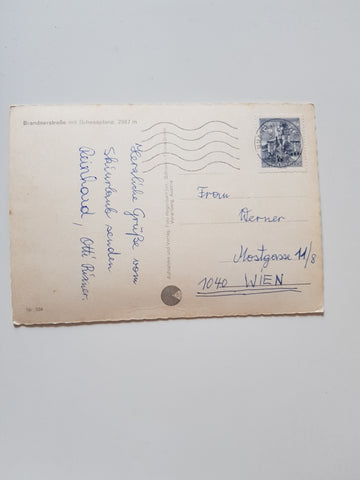 Brandnerstraße mit Schesaplana, 2967 m
Herzliche Grüße vom
Skiurlaub senden
Reinhard, Otti
Frau
Werner
Mostgasse 11/8
1040 WIEN